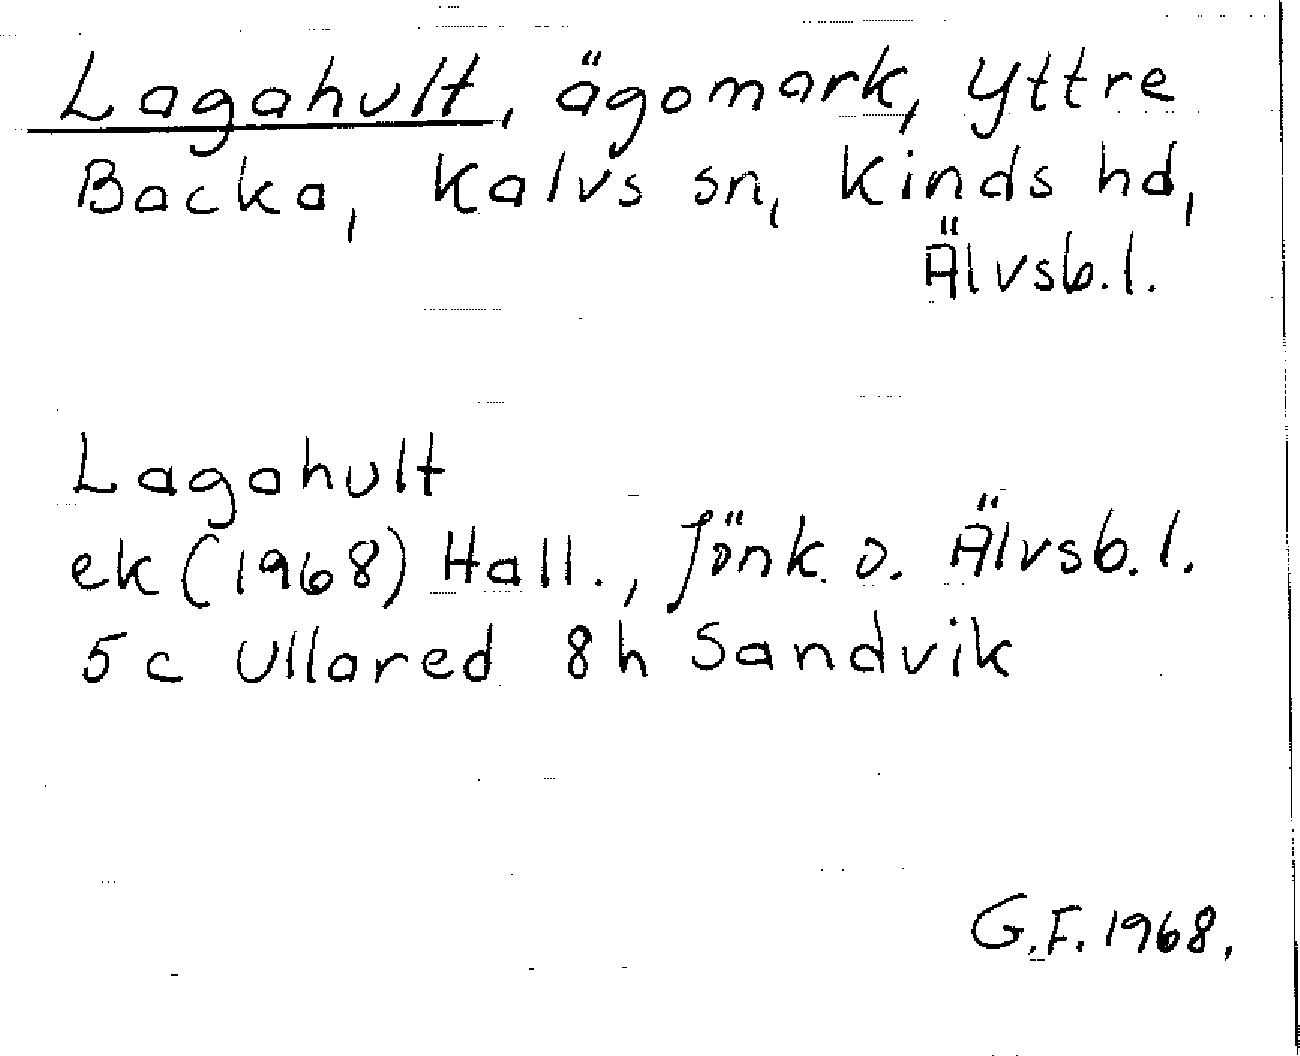 Lagahult, ägomark, Yttre
Backa, Kalvs sn, Kinds hd,
Älvsb.l.
Lagahult
ek (1968) Hall., Jönk. o. Älvsb.l.
5c Ullared 8h Sandvik
G.F. 1968.